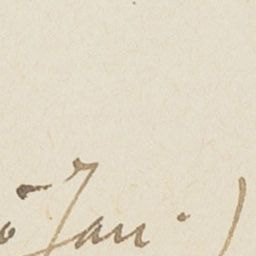 Jan. )